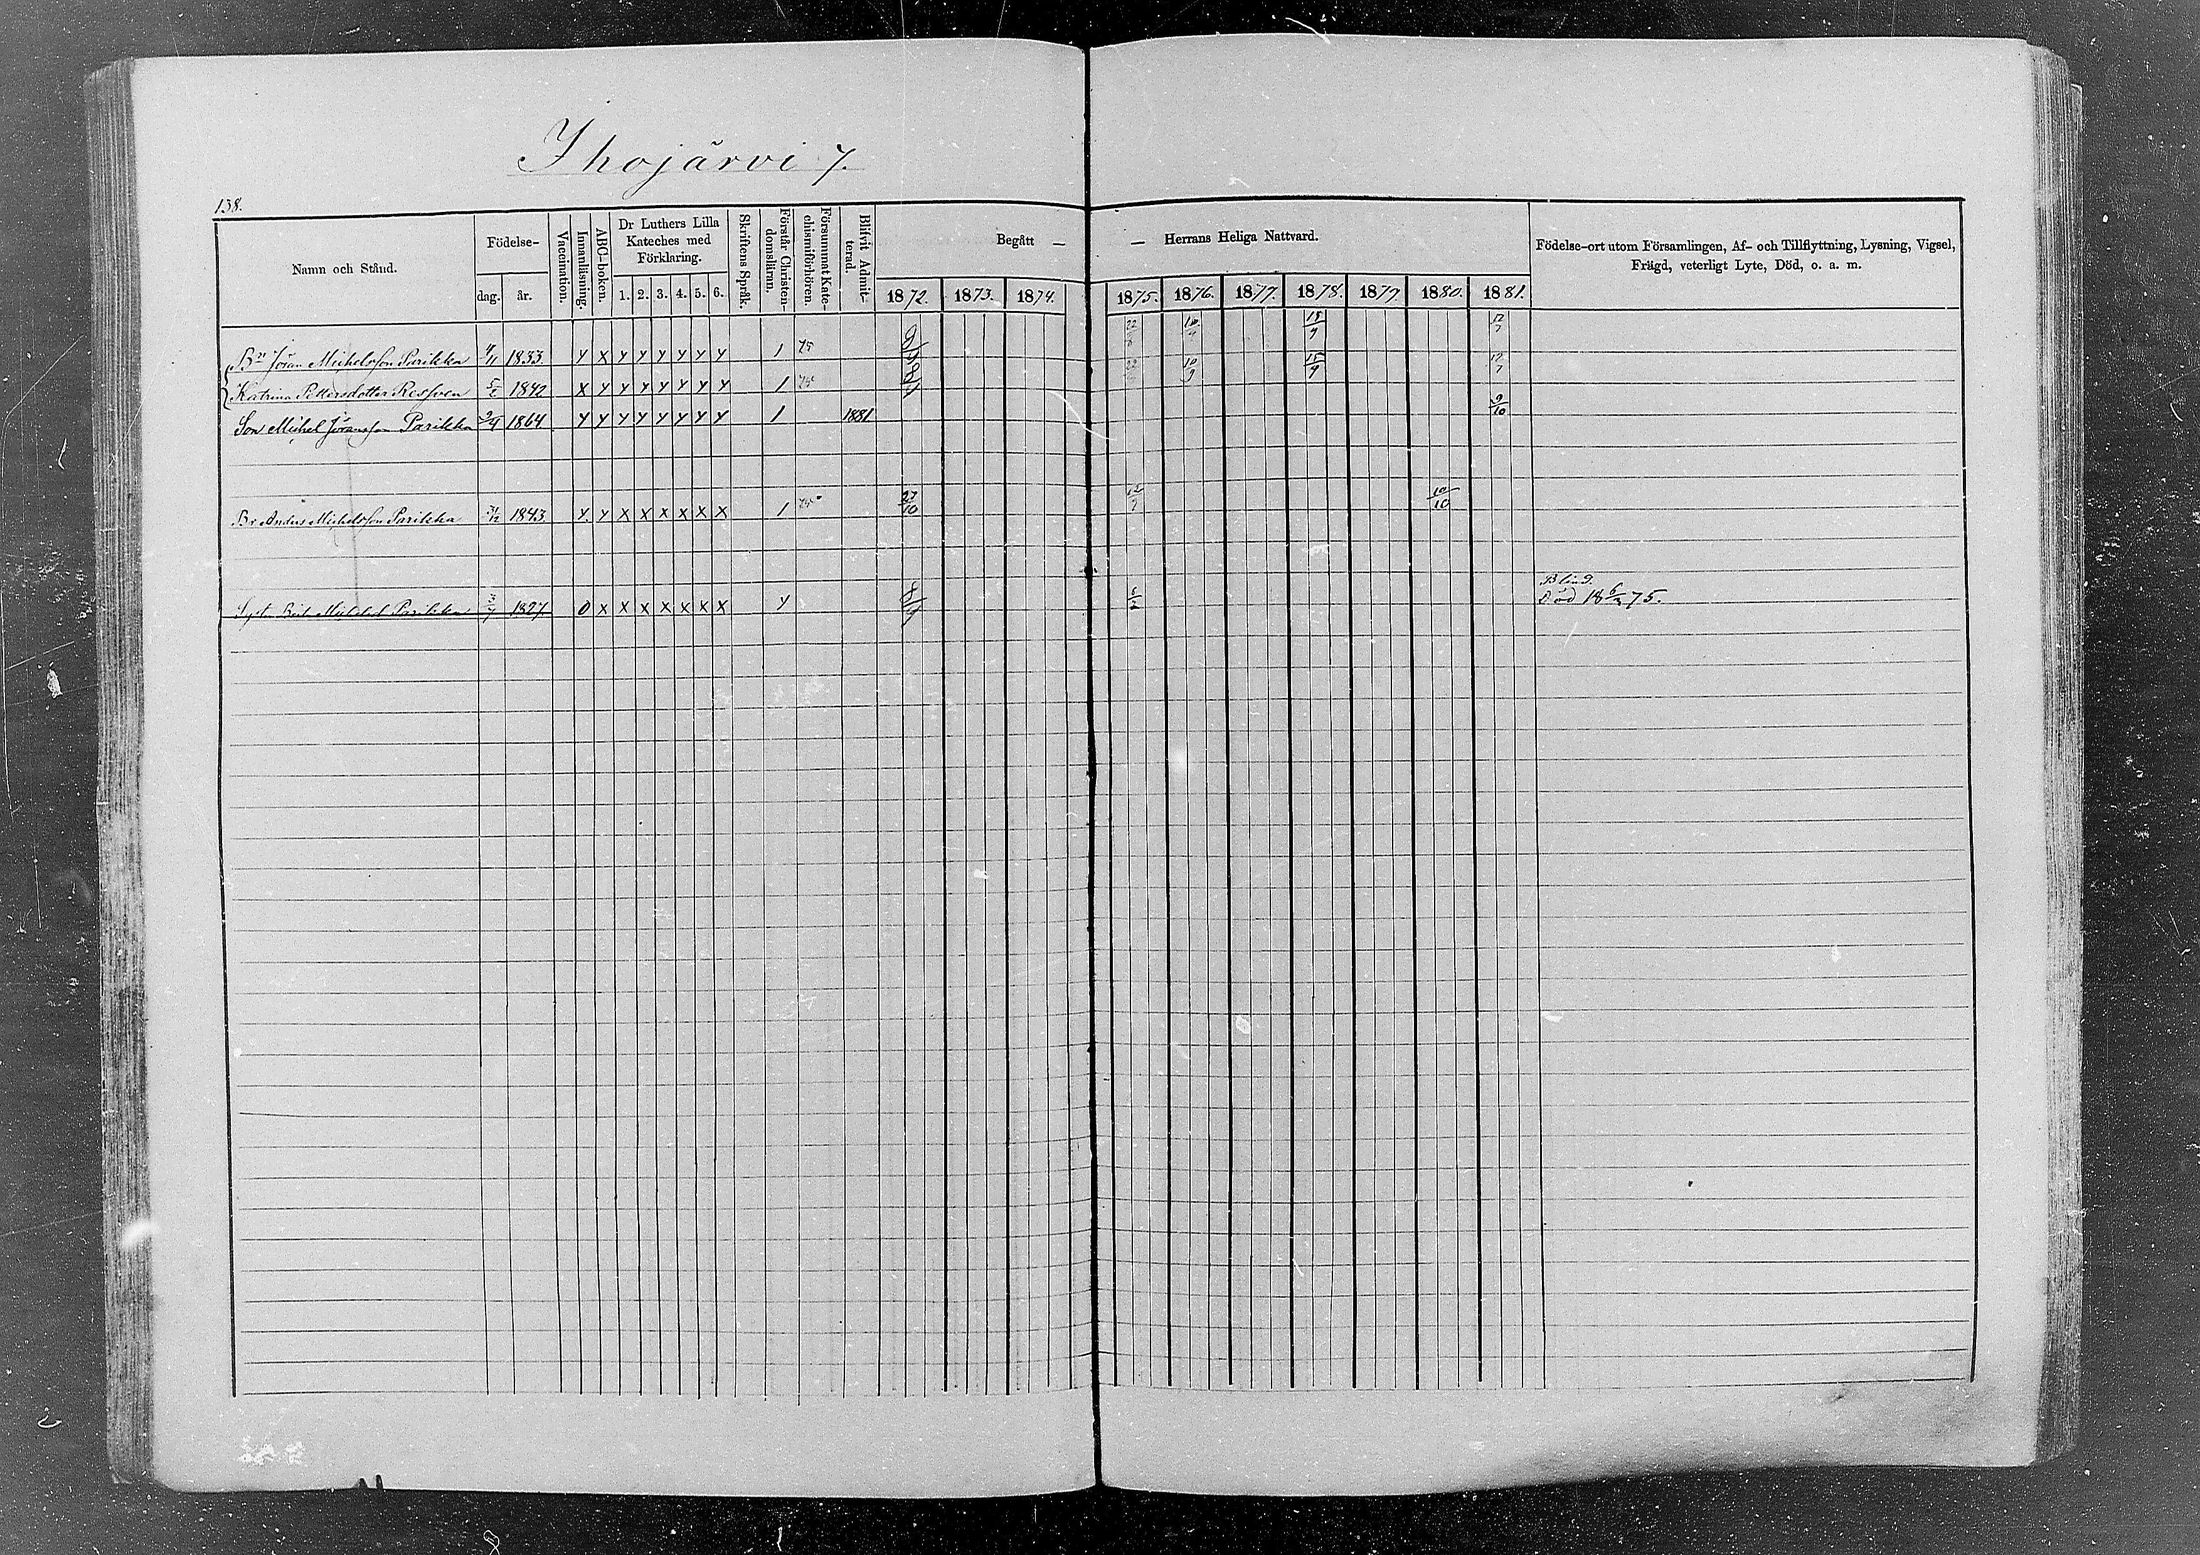 Ihojärvi 7.
138.
Namn och Stånd. Födelse- dag. år. Vaccination. Innanläsning. ABC-boken. Dr Luthers Lilla Kateches med Förklaring. 1. 2. 3. 4. 5. 6. Skriftens Språk. Förstår Christendomsläran. Försummat Katechismiförhören. Blifvit Admitterad. Begått — — Herrans Heliga Nattvard. Födelse-ort utom Församlingen, Af- och Tillflyttning, Lysning, Vigsel, Frägd, veterligt Lyte, Död, o. a. m.
1872. 1873. 1874. 1875. 1876. 1877. 1878. 1879 1880. 1881.
Göran Michelsson Parikka 1833. Y X Y Y Y Y Y Y 1 75 15/9 12/7
Katrina Pettersdotter 5/2 1842 X Y Y Y Y Y Y Y 1 75 10/9 15/9 12/7
Son Michel Göransson Parikka 1864 Y Y Y Y Y Y Y Y 1 1881. 9/10
Br Anders Michelsson Parikka 1843. Y. Y X X X X X X 1 75 27/10 10/10
Blind.
Michelsd. Parikka 1827 0 X X X X X X X Y 6/2 Död 18 6/2 75.